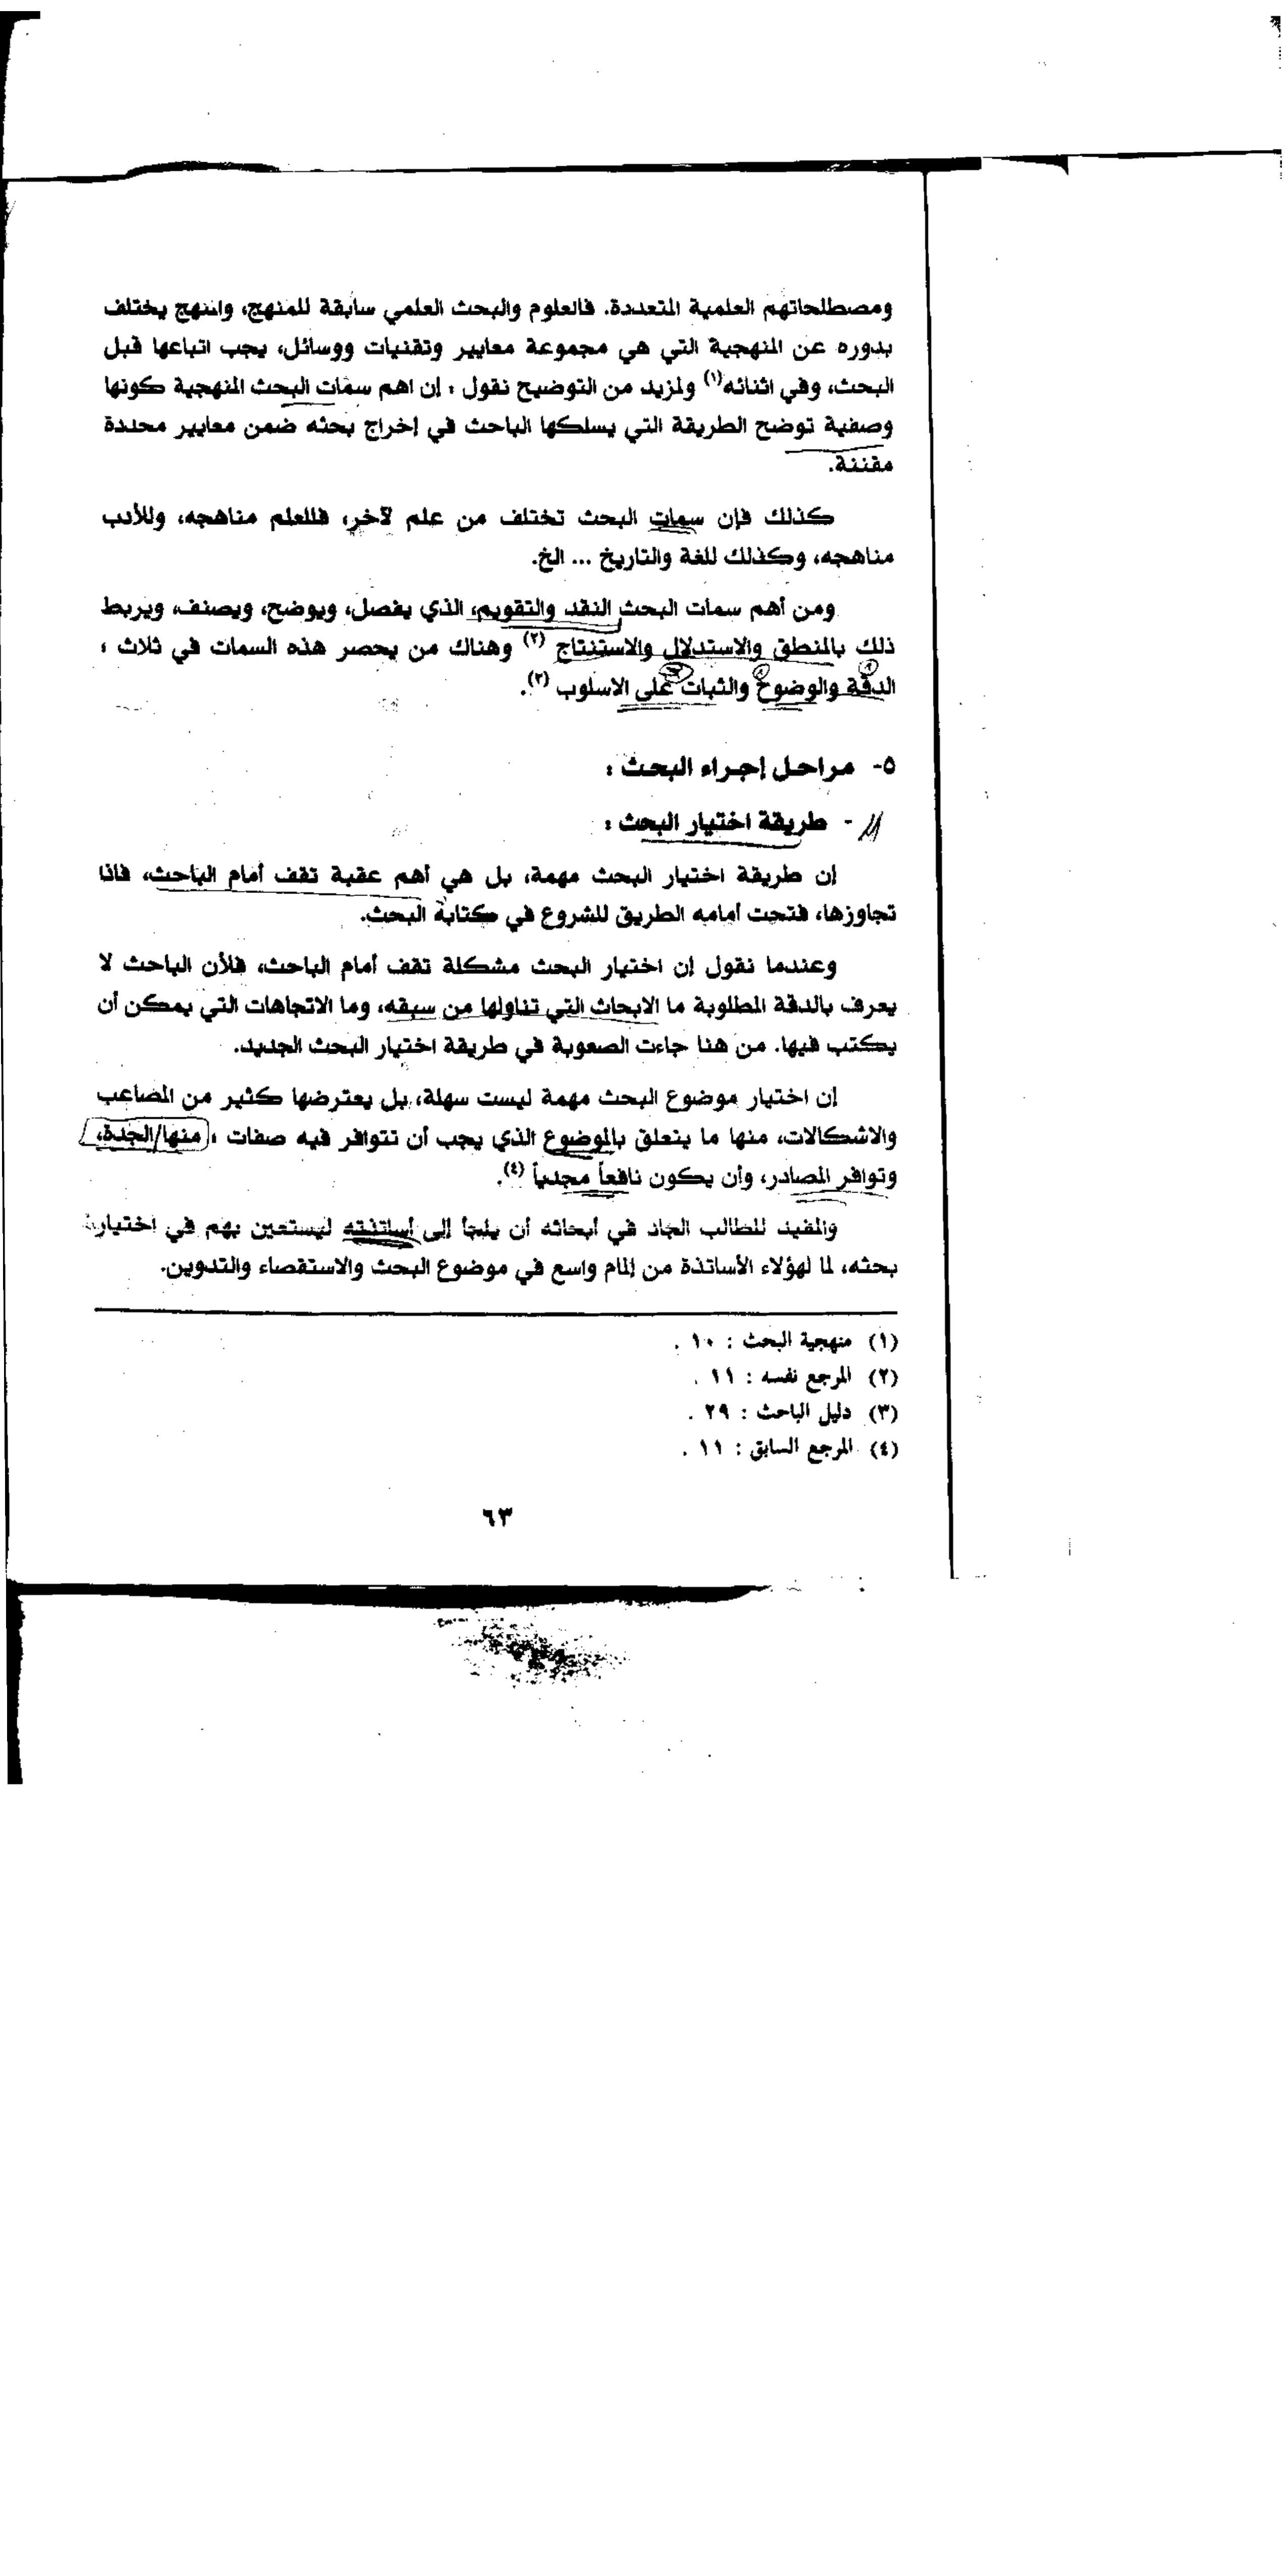 ومصطلحاتهم العلمية المتعددة. فالعلوم والبحث العلمي سابقة للمنهج، والمنهج يختلف
بدوره عن المنهجية التي هي مجموعة معايير وتقنيات ووسائل، يجب اتباعها قبل
البحث، وفي اثنائه(١) ولمزيد من التوضيح نقول : إن اهم سمات البحث المنهجية كونها
وصفية توضح الطريقة التي يسلكها الباحث في إخراج بحثه ضمن معايير محددة
مقننة.
كذلك فإن سمات البحث تختلف من علم لآخر، فللعلم مناهجه، وللأدب
مناهجه، وكذلك للغة والتاريخ ... الخ.
ومن أهم سمات البحث النقد والتقويم، الذي يفصل، ويوضح، ويصنف، ويربط
ذلك بالمنطق والاستدلال والاستنتاج (٢) وهناك من يحصر هذه السمات في ثلاث :
الدقة والوضوح والثبات على الاسلوب (٣).
٥- مراحل إجراء البحث :
- طريقة اختيار البحث :
إن طريقة اختيار البحث مهمة، بل هي أهم عقبة تقف أمام الباحث، فاذا
تجاوزها، فتحت أمامه الطريق للشروع في كتابة البحث.
وعندما نقول إن اختيار البحث مشكلة تقف أمام الباحث، فلأن الباحث لا
يعرف بالدقة المطلوبة ما الابحاث التي تناولها من سبقه، وما الاتجاهات التي يمكن أن
يكتب فيها. من هنا جاءت الصعوبة في طريقة اختيار البحث الجديد.
إن اختيار موضوع البحث مهمة ليست سهلة، بل يعترضها كثير من المصاعب
والاشكالات، منها ما يتعلق بالموضوع الذي يجب أن تتوافر فيه صفات : منها/الجدة،
وتوافر المصادر، وأن يكون نافعاً مجدياً (٤).
والمفيد للطالب الجاد في أبحاثه أن يلجأ إلى أساتذته ليستعين بهم في اختيار
بحثه، لما لهؤلاء الأساتذة من إلمام واسع في موضوع البحث والاستقصاء والتدوين.
(١) منهجية البحث : ١٠ .
(٢) المرجع نفسه : ١١ .
(٣) دليل الباحث : ٢٩ .
(٤) المرجع السابق : ١١ .
٦٣